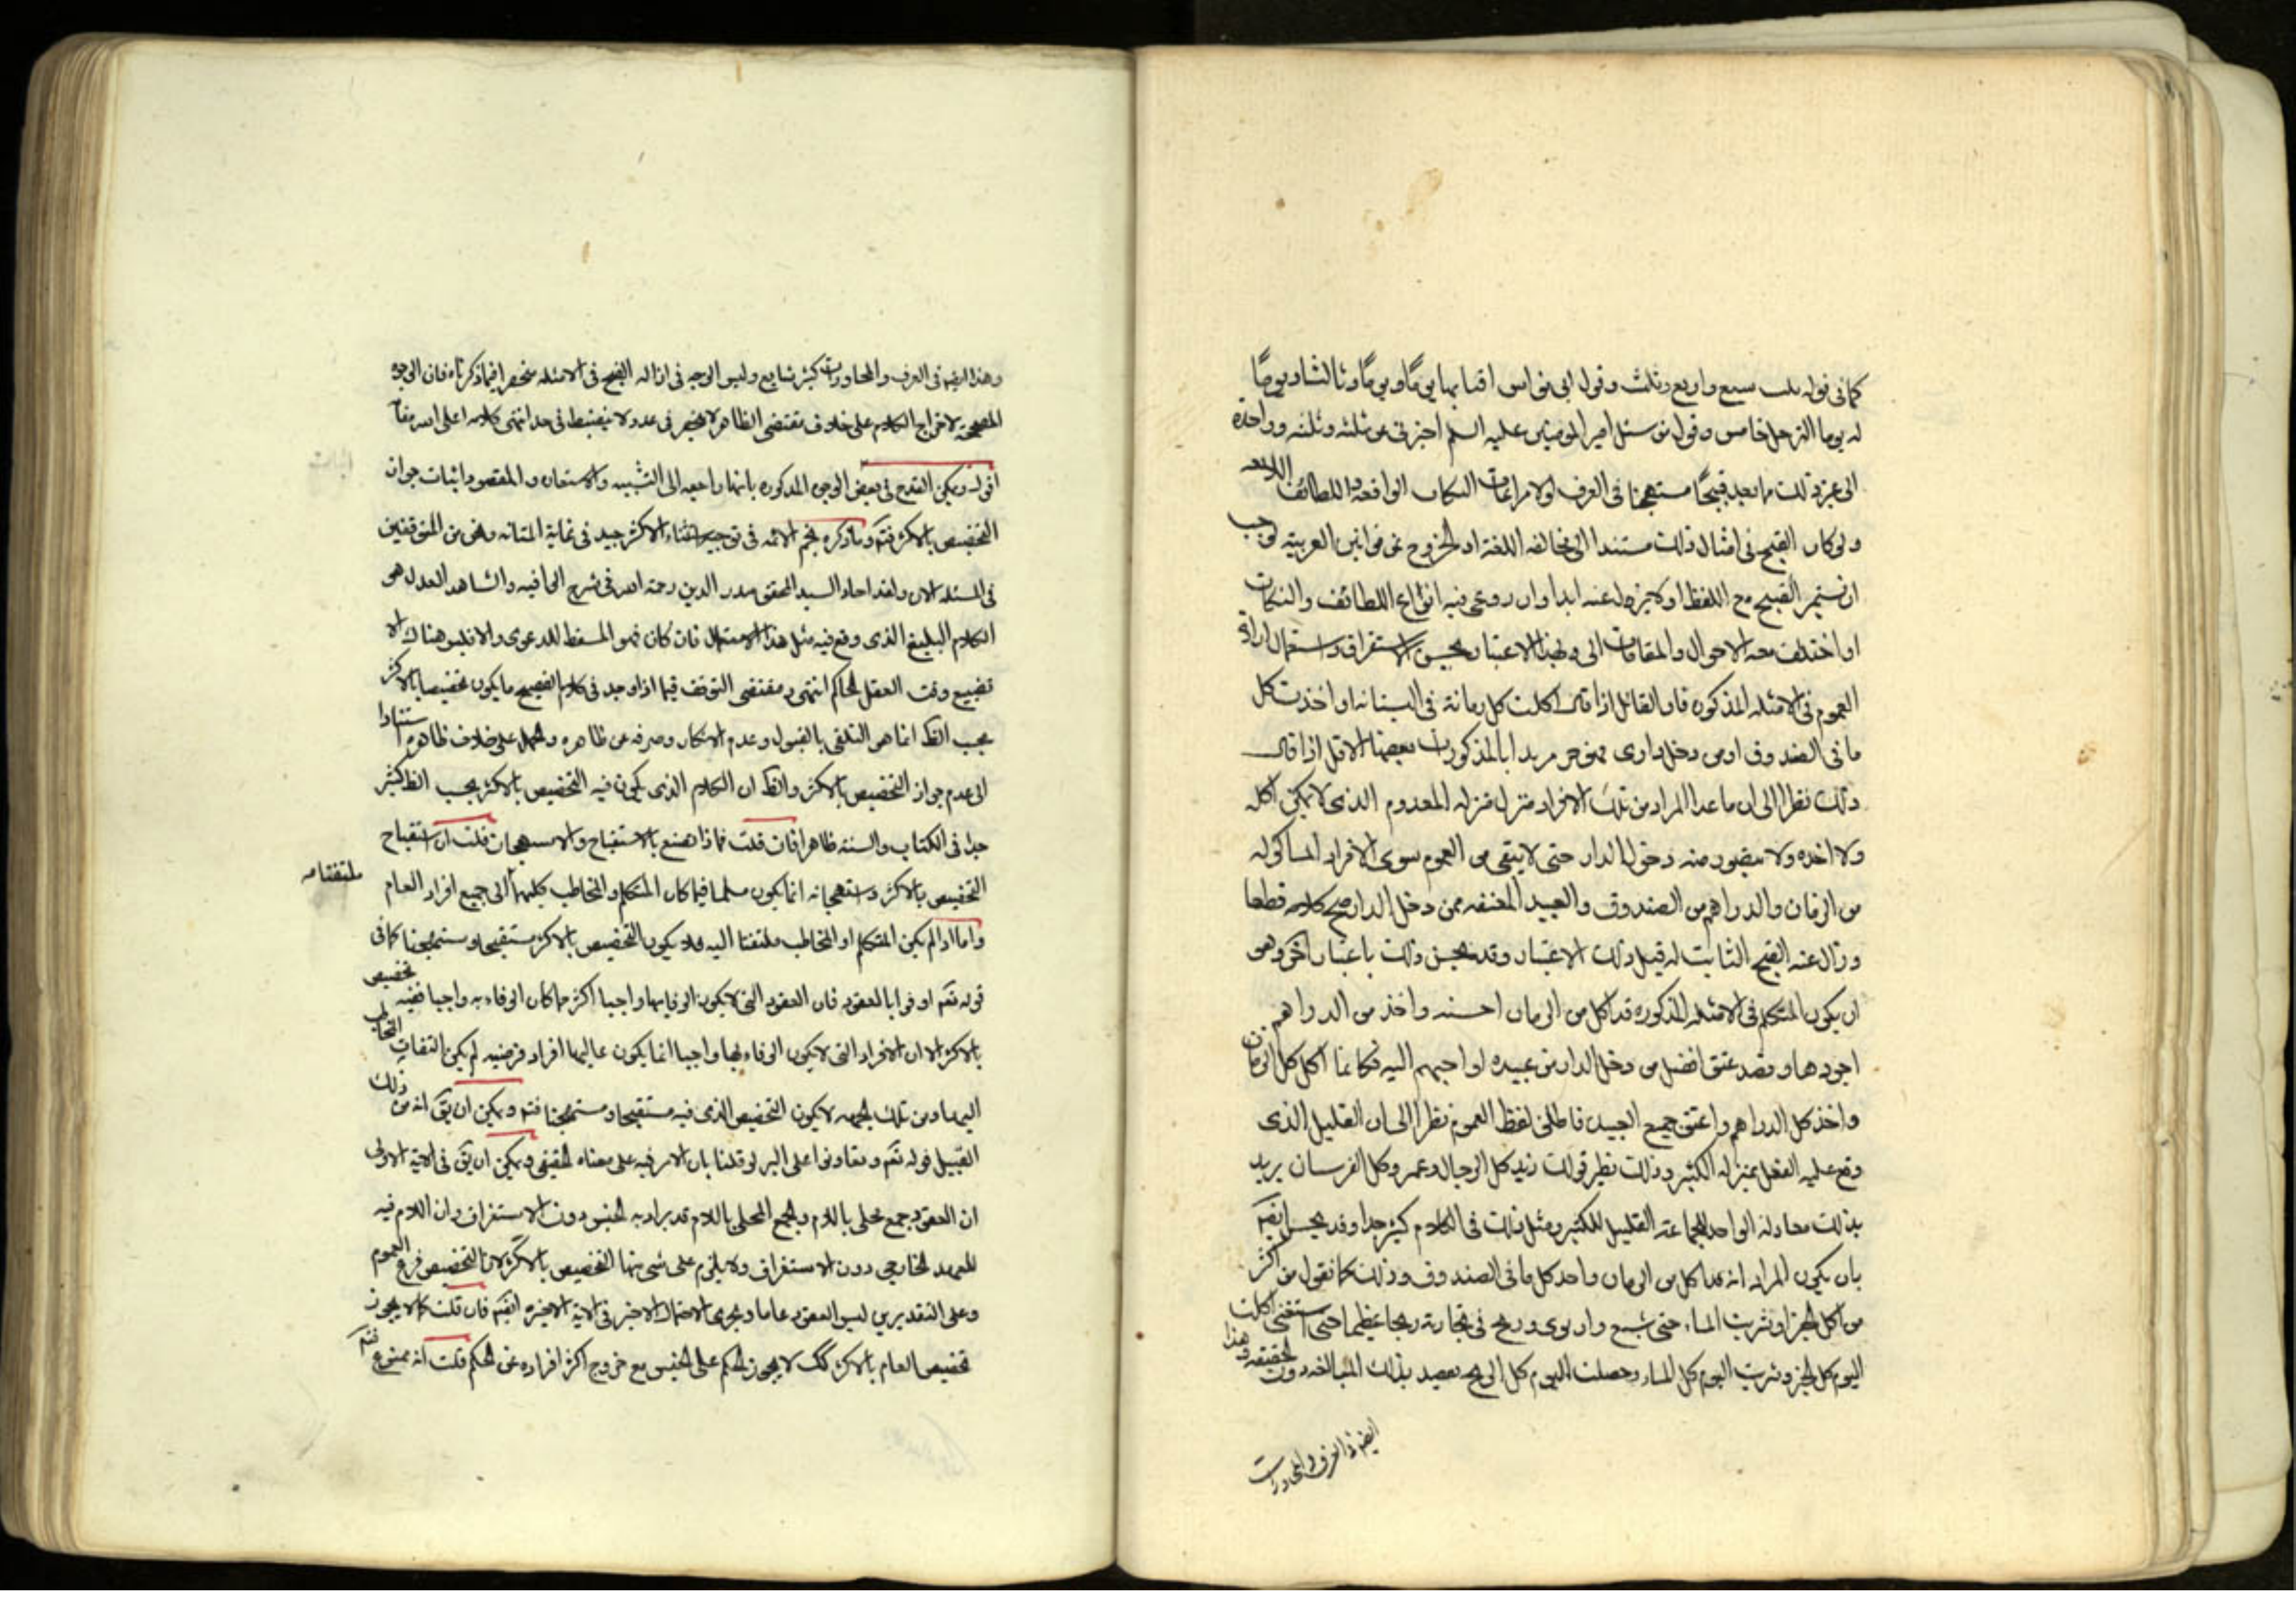 كما في قوله سبع واربع وثلث وقول ابي نواس اقنا بها يوما ويوما وثالثا ويوما
له يوما الترحل خامس وقول من سئل امير المومنين عليه السلم اخبرني عن ثلثه وثلثه وواحدة
الى غير ذلك مما يعد قبيحًا مستهجنا في العرف لولا مراعات النكات الواقعة واللطائف
ولو كان القبح في امثال ذلك مستندا الى مخالفه اللغة او الخروج عن قوانين العربية لوجب
ان يستمر القبيح مع اللفظ اولا يزول عنه ابدا وان روعى فيه انواع اللطائف والنكات
او اختلف معه الاحوال والمقامات الى وبهذا الاعتبار يحسن الاستغراق واستعمال اداة
العموم في الامثله المذكوره فان القائل اذا قال اكلت كل رمانة في البستان او اخذت كل
ما في الصندوق او من دخل داري فهو حر مريدا بالمذكورات بعضها الاقل اذا قال
ذلك نظرا الى ان ما عدا المراد من تلك الافراد منزل منزله المعدوم الذي لا يمكن اكله
ولا اخذه ولا يتصور منه دخول الدار حتى لا يبقى من العموم سوى الافراد الماكوله
من الرمان والدراهم من الصندوق والعبيد المعتقه ممن دخل الدار صح كلامه قطعا
وزال عنه القبح الثابت له قبل ذلك الاعتبار وقد يحسن ذلك باعتبار اخر وهو
ان يكون المتكلم في الامثله المذكوره قد اكل من الرمان احسنه واخذ من الدراهم
اجودها وقصد عتق افضل من دخل الدار من عبيده او احبهم اليه فكانما اكل كل الرمان
واخذ كل الدراهم واعتق جميع العبيد فاطلق لفظ العموم نظرا الى ان القليل الذي
وقع عليه الفعل بمنزله الكثير وذلك نظير قولك زيد كل الرجال وعمرو كل الفرسان يريد
بذلك معادلة الواحد للجماعة القليل للكثير ومثل ذلك في الكلام كثير جدا وقد يحسن ايضا
بان يكون المراد انه قد اكل من الرمان واخذ كل ما في الصندوق وذلك كما نقول من اكثر
من اكل الخبز او شرب الماء حتى شبع وارتوى وربح في تجارة ربحا عظيما حتى استغنى اكلت
اليوم كل الخبز وشربت اليوم كل الماء وحصلت اليوم كل الربح يقصد بذلك المبالغه دون الحقيقه وهذا
ايضا في العرف والمحاورات
وهذا ايضا في العرف والمحاورات كثير شايع وليس الوجه في ازاله القبح في الامثله منحصرا فيما ذكرناه فان الوجوه
المصححة لاخراج الكلام على خلاف مقتضى الظاهر لا ينحصر في عدد ولا ينضبط في حد انتهى كلامه اعلى الله مقامه
اقول ويمكن القدح في بعض الوجوه المذكوره بانها راجعه الى التشبيه والاستعاره والمقصود اثبات جواز
التخصيص بالاكثر فتم وما ذكره نجم الائمه في توجيه استثناء الاكثر جيد في غاية المتانه ونحن من المتوقفين
في المسئله الان ولقد اجاد السيد المحقق صدر الدين رحمه الله في شرح الوافيه والشاهد العدل هو
الكلام البليغ الذي وقع فيه مثل هذا الاستعمال فان كان فهو المسقط للدعوى والا فليس هناك الا
تضييع وقت العقل الحاكم انتهى ومقتضى التوقف فيما اذا وجد في كلام الفصيح ما يكون تخصيصا بالاكثر
بحسب الظ انما هو التلقي بالقبول وعدم الانكار وصرفه عن ظاهره والحمل على خلاف ظاهره استنادا
الى عدم جواز التخصيص بالاكثر والظ ان الكلام الذي يكون فيه التخصيص بالاكثر بحسب الظ كثير
جدا في الكتاب والسنه ظاهرا فان قلت فماذا تصنع بالاستقباح والاستهجان قلت ان استقباح
التخصيص بالاكثر واستهجانه انما يكون مسلما فيما كان المتكلم والمخاطب كليهما الى جميع افراد العام
ملتفتا
واما اذا لم يكن المتكلم او المخاطب ملتفتا اليه فلا يكون التخصيص بالاكثر مستقبحا ومستهجنا كما في
قوله تعم اوفوا بالعقود فان العقود التي لا يكون الوفا بها واجبا اكثر مما كان الوفاء به واجبا ففيه تخصيص
بالاكثر الا ان الافراد التي لا يكون الوفاء بها واجبا انما يكون غالبها افراد فرضيه لم يكن التفات المخاطب
اليها ومن تلك الجهه لا يكون التخصيص الذي فيه مستقبحا ومستهجنا فتم ويمكن ان يق انه من ذلك
القبيل قوله تعم وتعاونوا على البر لو قلنا بان الامر فيه على معناه الحقيقي ويمكن ان يق في الاية الاولى
ان العقود جمع محلى باللام والجمع المحلى باللام قد يراد به الجنس دون الاستغراق وان اللام فيه
للعهد الخارجي دون الاستغراق ولا يلزم على شئ منها التخصيص بالاكثر لان التخصيص فرع العموم
وعلى التقديرين ليس العقود عاما ويجرى الاحتمال الاخير في الاية الاخيره ايضا فان قلت كما لا يجوز
تخصيص العام بالاكثر كك لا يجوز الحكم على الجنس مع خروج اكثر افراده عن الحكم قلت انه ممنوع فتم